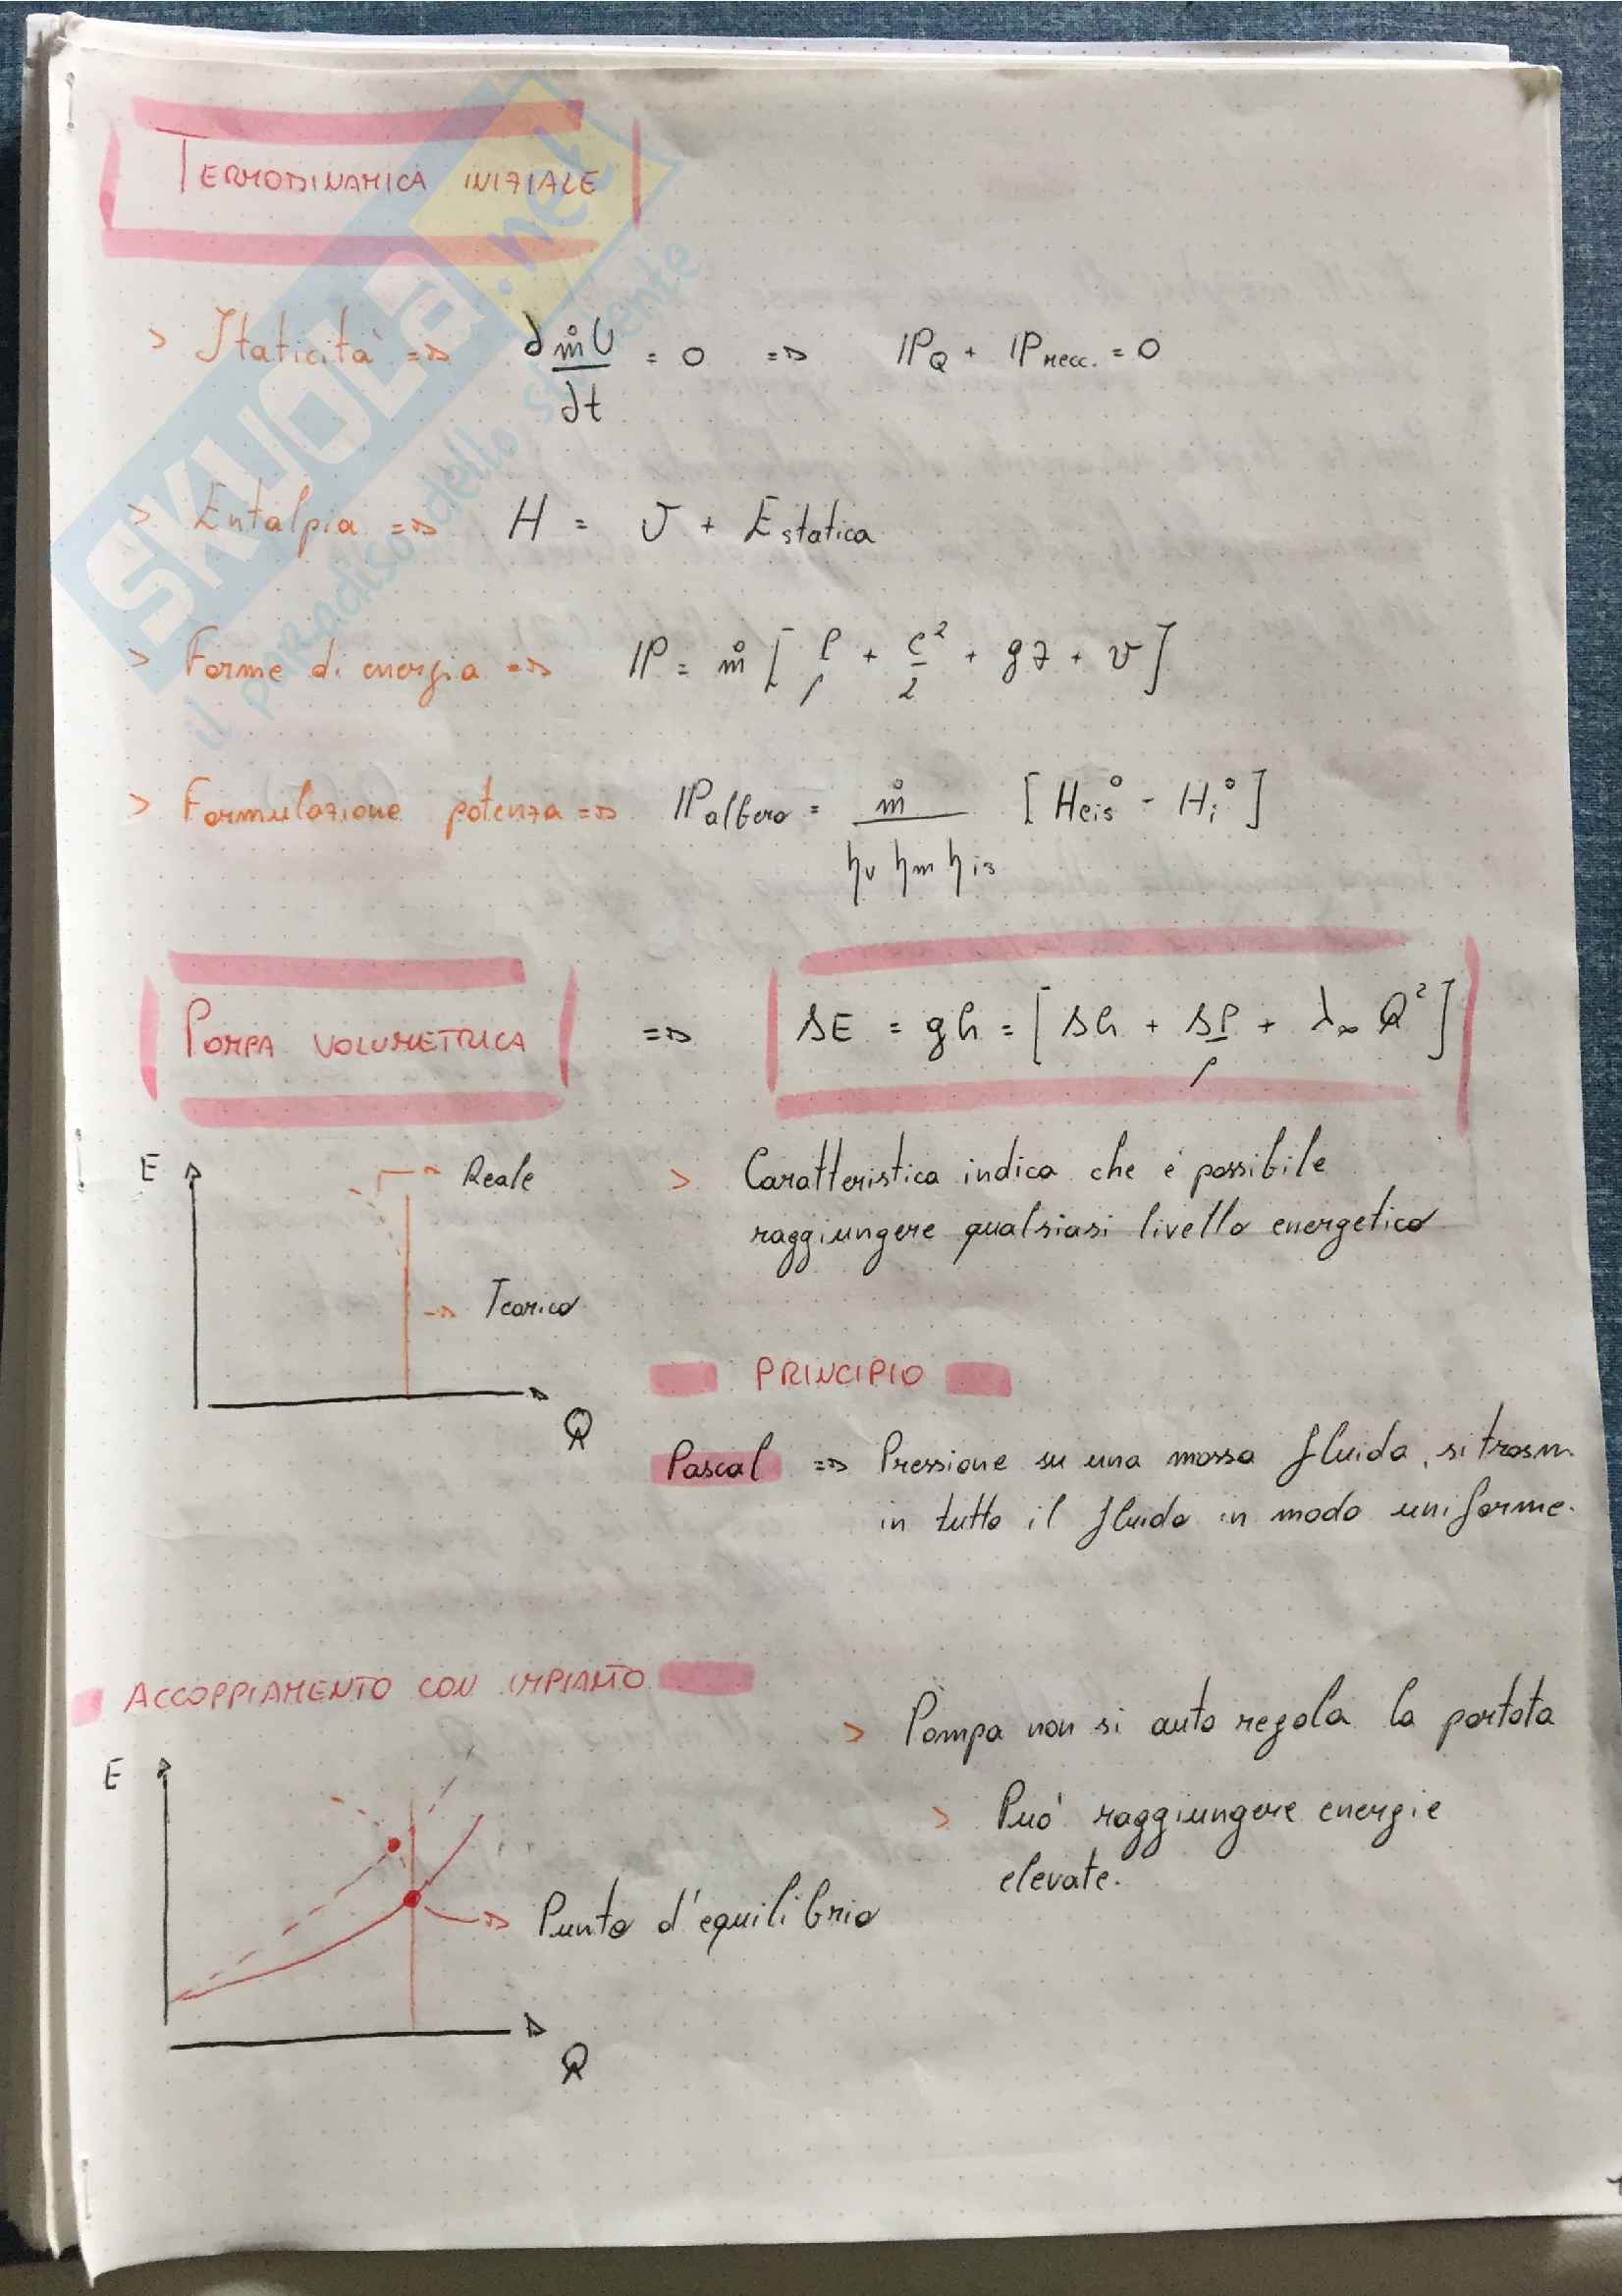 TERMODINAMICA INIZIALE
> Staticità => ∂ṁU/∂t = 0 => IP_Q + IP_mecc. = 0
> Entalpia => H = U + E_statica
> Forme di energia => IP = ṁ [P/ρ + c²/2 + gz + U]
> Formulazione potenza => IP_albero = ṁ/(ηv ηm ηis) [Heis° - Hi°]
POMPA VOLUMETRICA => ΔE = gh = [Δh + ΔP/ρ + λ∞ Q²]
E
Reale
Teorico
Q
> Caratteristica indica che è possibile
raggiungere qualsiasi livello energetico
PRINCIPIO
Pascal => Pressione su una massa fluida, si trasm.
in tutto il fluido in modo uniforme.
ACCOPPIAMENTO CON IMPIANTO
> Pompa non si auto regola la portata
> Può raggiungere energie
elevate.
E
Punto d'equilibrio
Q
SKUOLA.net
il paradiso dello studente